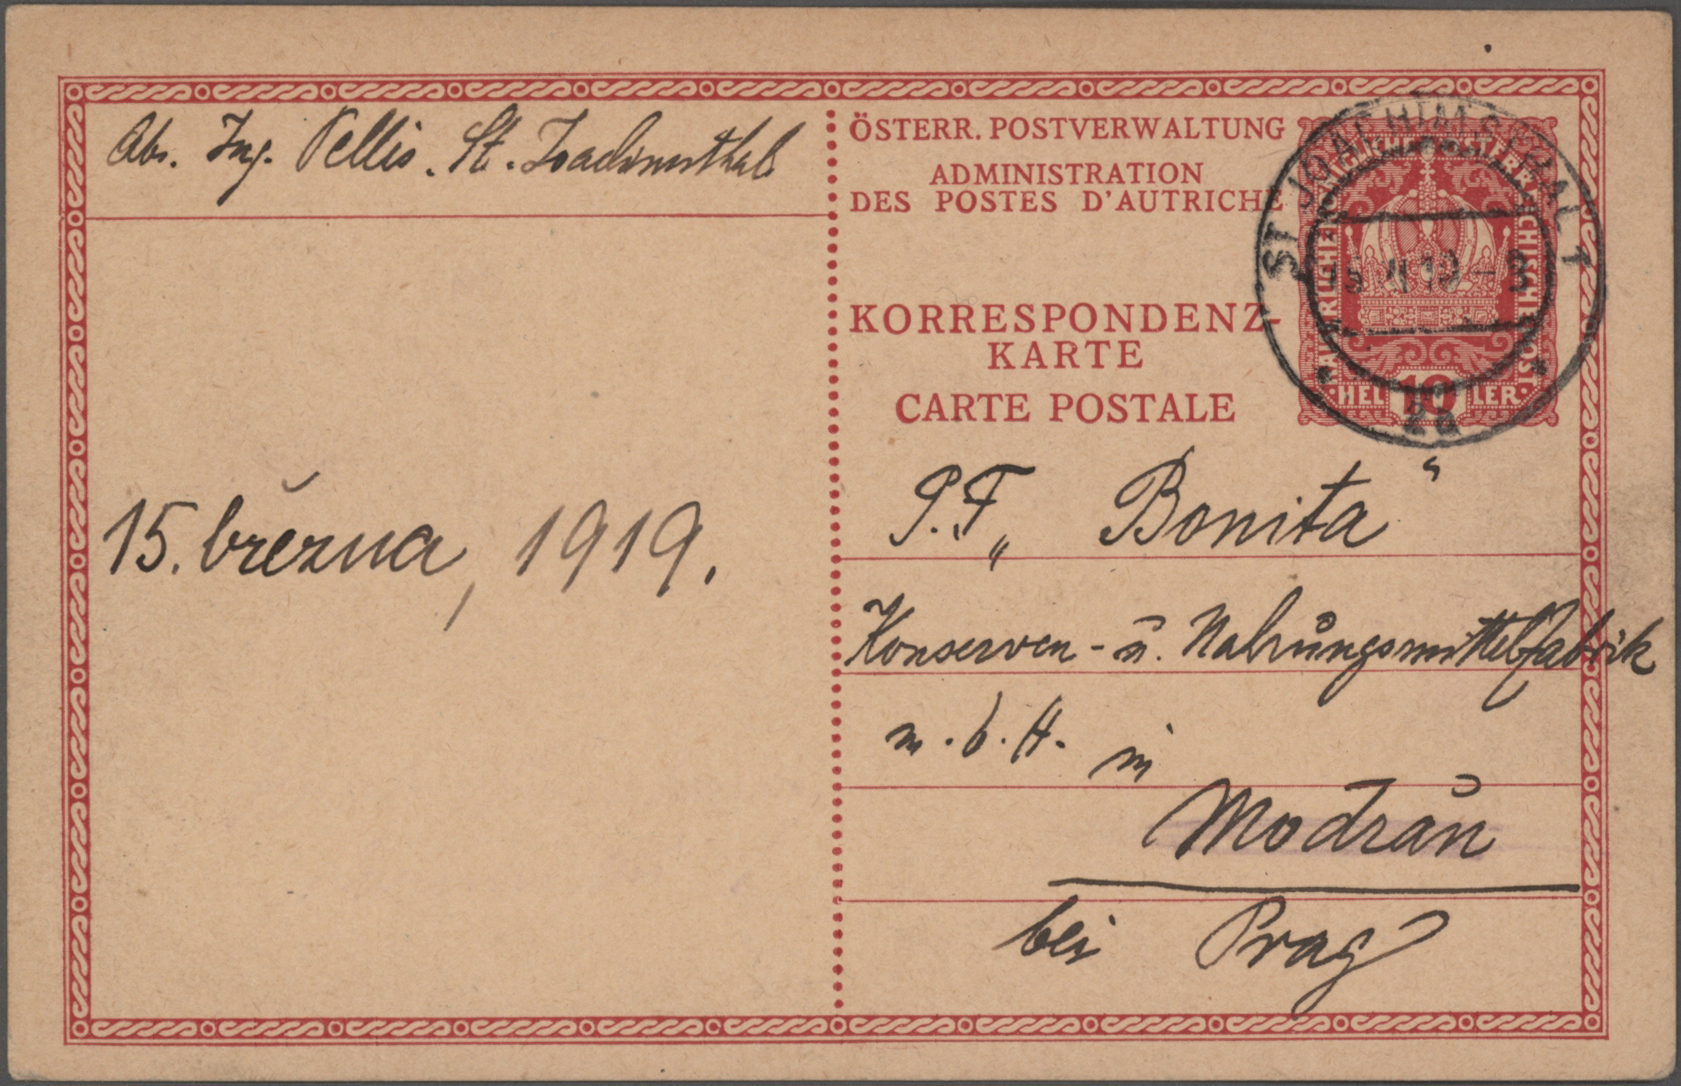 Abs. Ing. Pellis. St. Joachimsthal
ÖSTERR. POSTVERWALTUNG
ADMINISTRATION
DES POSTES D'AUTRICHE
ST. JOACHIMSTHAL 1
KORRESPONDENZ-
KARTE
CARTE POSTALE
HEL 10 LER
2a
15. března, 1919.
P.F. „Bonita“
Konserven- u. Nahrungsmittelfabrik
m. b. H. in
Modřan
bei Prag